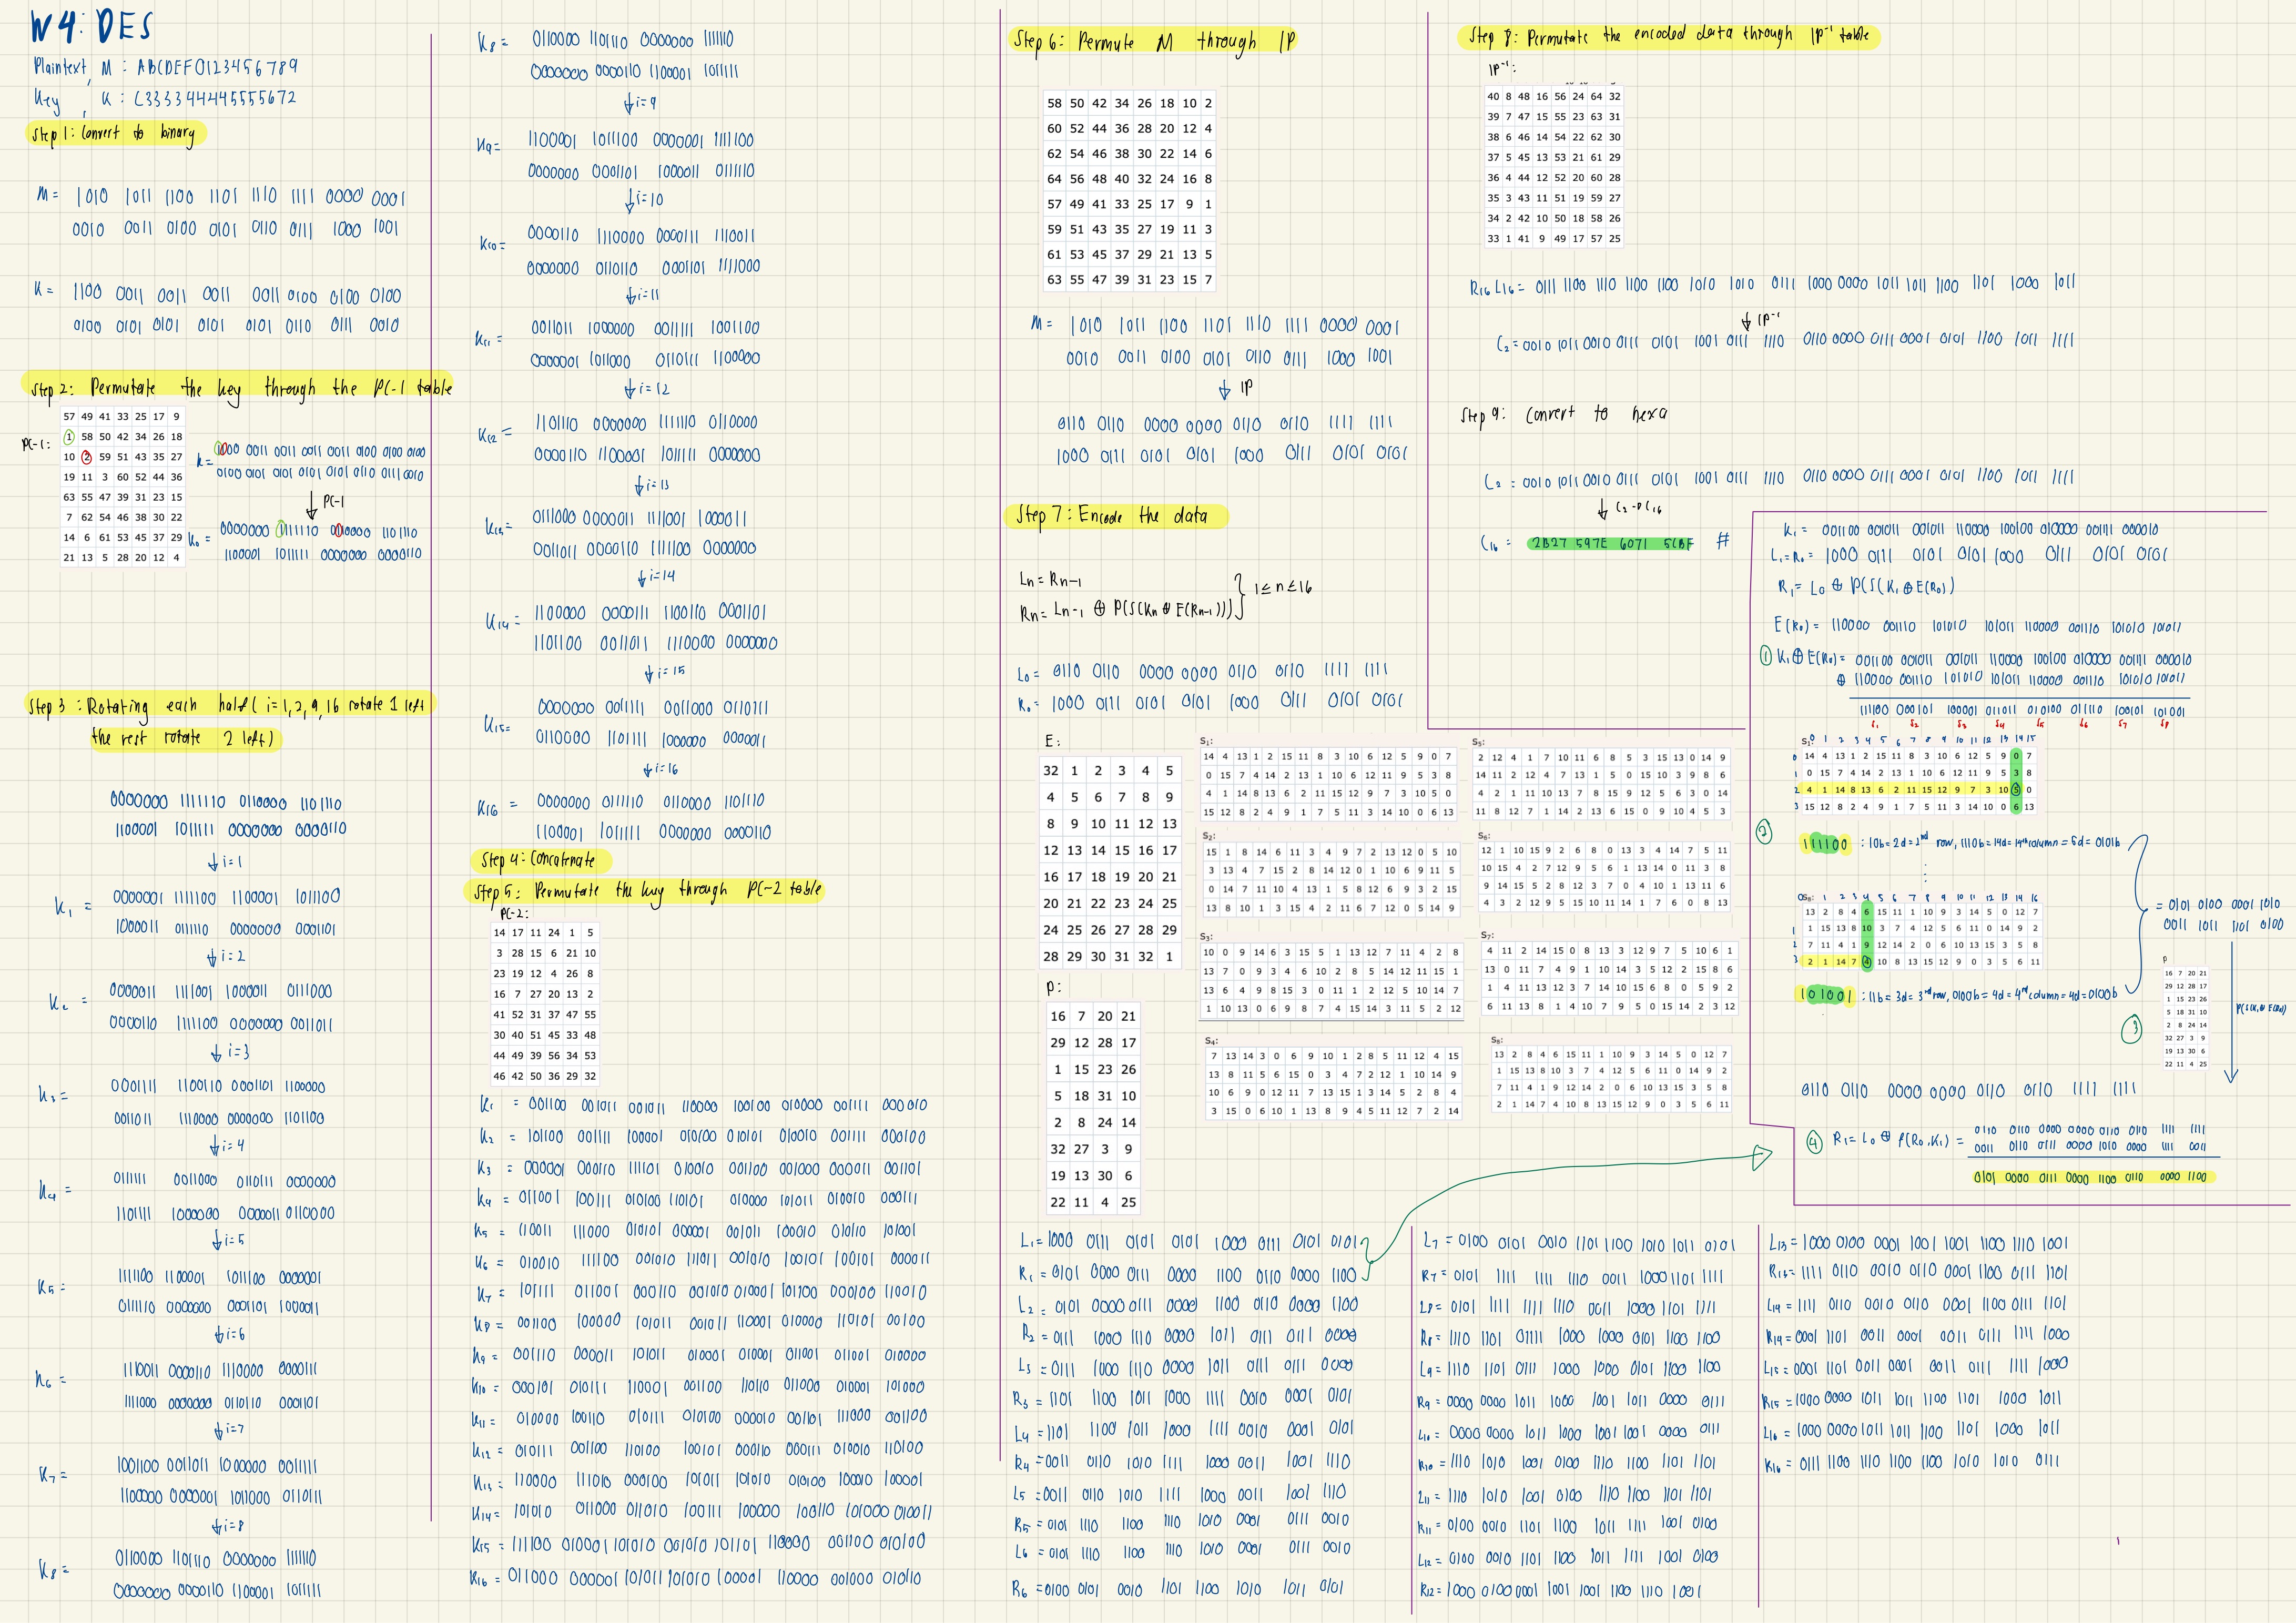 W4: DES
Plaintext, M : ABCDEF0123456789
Key, K : C333344445555672
Step 1: Convert to binary
M = 1010 1011 1100 1101 1110 1111 0000 0001
0010 0011 0100 0101 0110 0111 1000 1001
K = 1100 0011 0011 0011 0011 0100 0100 0100
0100 0101 0101 0101 0101 0110 0111 0010
Step 2: Permutate the key through the PC-1 table
PC-1:
57 49 41 33 25 17 9
1 58 50 42 34 26 18
10 2 59 51 43 35 27
19 11 3 60 52 44 36
63 55 47 39 31 23 15
7 62 54 46 38 30 22
14 6 61 53 45 37 29
21 13 5 28 20 12 4
0100 0101 0101 0101 0101 0110 0111 0010
PC-1
1100001 1011111 0000000 0000110
Step 3: Rotating each half ( i=1,2,9,16 rotate 1 left
the rest rotate 2 left)
0000000 1111110 0110000 1101110
1100001 1011111 0000000 0000110
↓ i=1
K1 = 0000001 1111100 1100001 1011100
1000011 011110 0000000 0001101
↓ i=2
K2 = 0000011 1111001 1000011 0111000
0000110 1111100 0000000 0011011
↓ i=3
K3 = 0001111 1100110 0001101 1100000
0011011 1110000 0000000 1101100
↓ i=4
K4 = 0111111 0011000 0110111 0000000
1101111 1000000 0000011 0110000
↓ i=5
K5 = 1111100 1100001 1011100 0000001
0111110 0000000 0001101 1000011
↓ i=6
K6 = 1110011 0000110 1110000 0000111
1111000 0000000 0110110 0001101
↓ i=7
K7 = 1001100 0011011 1000000 0011111
1100000 0000001 1011000 0110111
↓ i=8
K8 = 0110000 1101110 0000000 1111110
0000000 0000110 1100001 1011111
K8 = 0110000 1101110 0000000 1111110
0000000 0000110 1100001 1011111
↓ i=9
K9 = 1100001 1011100 0000001 1111100
0000000 0001101 1000011 0111110
↓ i=10
K10 = 0000110 1110000 0000111 1110011
0000000 0110110 0001101 1111000
↓ i=11
K11 = 0011011 1000000 0011111 1001100
0000001 1011000 0110111 1100000
↓ i=12
K12 = 1101110 0000000 1111110 0110000
0000110 1100001 1011111 0000000
↓ i=13
K13 = 0111000 0000011 1111001 1000011
0011011 0000110 1111100 0000000
↓ i=14
K14 = 1100000 0000111 1100110 0001101
1101100 0011011 1110000 0000000
↓ i=15
K15 = 0000000 0011111 0011000 0110111
0110000 1101111 1000000 0000011
↓ i=16
K16 = 0000000 0111110 0110000 1101110
1100001 1011111 0000000 0000110
Step 4: Concatenate
Step 5: Permutate the key through PC-2 table
PC-2:
14 17 11 24 1 5
3 28 15 6 21 10
23 19 12 4 26 8
16 7 27 20 13 2
41 52 31 37 47 55
30 40 51 45 33 48
44 49 39 56 34 53
46 42 50 36 29 32
K1 = 001100 001011 001011 110000 100100 010000 001111 000010
K2 = 101100 001111 100001 010100 010101 010010 001111 000100
K3 = 000001 000110 111101 010010 001100 001000 000011 001101
K4 = 011001 100111 010100 110101 010000 101011 010010 000111
K5 = 110011 111000 010101 000001 001011 100010 010110 101001
K6 = 010010 111100 001010 111011 001010 100101 100101 000011
K7 = 101111 011001 000110 001010 010001 101100 000100 110010
K8 = 001100 100000 101011 001011 110001 010000 110101 00100
K9 = 001110 000011 101011 010001 010001 011001 011001 010000
K10 = 000101 010111 110001 001100 110110 011000 010001 101000
K11 = 010000 100110 010111 010100 000010 001101 111000 001100
K12 = 010111 001100 110100 100101 000110 000111 010010 110100
K13 = 110000 111010 000100 101011 101010 010100 100010 100001
K14 = 101010 011000 011010 100111 100000 100110 101000 010011
K15 = 111100 010001 101010 001010 101101 110000 001100 010100
K16 = 011000 000001 101011 101010 100001 110000 001000 010110
Step 6: Permute M through IP
58 50 42 34 26 18 10 2
60 52 44 36 28 20 12 4
62 54 46 38 30 22 14 6
64 56 48 40 32 24 16 8
57 49 41 33 25 17 9 1
59 51 43 35 27 19 11 3
61 53 45 37 29 21 13 5
63 55 47 39 31 23 15 7
M = 1010 1011 1100 1101 1110 1111 0000 0001
0010 0011 0100 0101 0110 0111 1000 1001
↓ IP
0110 0110 0000 0000 0110 0110 1111 1111
1000 0111 0101 0101 1000 0111 0101 0101
Step 7: Encode the data
Ln = Rn-1
Rn = Ln-1 ⊕ P(S(Kn ⊕ E(Rn-1))) } 1 ≤ n ≤ 16
L0 = 0110 0110 0000 0000 0110 0110 1111 1111
R0 = 1000 0111 0101 0101 1000 0111 0101 0101
E:
32 1 2 3 4 5
4 5 6 7 8 9
8 9 10 11 12 13
12 13 14 15 16 17
16 17 18 19 20 21
20 21 22 23 24 25
24 25 26 27 28 29
28 29 30 31 32 1
P:
16 7 20 21
29 12 28 17
1 15 23 26
5 18 31 10
2 8 24 14
32 27 3 9
19 13 30 6
22 11 4 25
S1:
14 4 13 1 2 15 11 8 3 10 6 12 5 9 0 7
0 15 7 4 14 2 13 1 10 6 12 11 9 5 3 8
4 1 14 8 13 6 2 11 15 12 9 7 3 10 5 0
15 12 8 2 4 9 1 7 5 11 3 14 10 0 6 13
S2:
15 1 8 14 6 11 3 4 9 7 2 13 12 0 5 10
3 13 4 7 15 2 8 14 12 0 1 10 6 9 11 5
0 14 7 11 10 4 13 1 5 8 12 6 9 3 2 15
13 8 10 1 3 15 4 2 11 6 7 12 0 5 14 9
S3:
10 0 9 14 6 3 15 5 1 13 12 7 11 4 2 8
13 7 0 9 3 4 6 10 2 8 5 14 12 11 15 1
13 6 4 9 8 15 3 0 11 1 2 12 5 10 14 7
1 10 13 0 6 9 8 7 4 15 14 3 11 5 2 12
S4:
7 13 14 3 0 6 9 10 1 2 8 5 11 12 4 15
13 8 11 5 6 15 0 3 4 7 2 12 1 10 14 9
10 6 9 0 12 11 7 13 15 1 3 14 5 2 8 4
3 15 0 6 10 1 13 8 9 4 5 11 12 7 2 14
S5:
2 12 4 1 7 10 11 6 8 5 3 15 13 0 14 9
14 11 2 12 4 7 13 1 5 0 15 10 3 9 8 6
4 2 1 11 10 13 7 8 15 9 12 5 6 3 0 14
11 8 12 7 1 14 2 13 6 15 0 9 10 4 5 3
S6:
12 1 10 15 9 2 6 8 0 13 3 4 14 7 5 11
10 15 4 2 7 12 9 5 6 1 13 14 0 11 3 8
9 14 15 5 2 8 12 3 7 0 4 10 1 13 11 6
4 3 2 12 9 5 15 10 11 14 1 7 6 0 8 13
S7:
4 11 2 14 15 0 8 13 3 12 9 7 5 10 6 1
13 0 11 7 4 9 1 10 14 3 5 12 2 15 8 6
1 4 11 13 12 3 7 14 10 15 6 8 0 5 9 2
6 11 13 8 1 4 10 7 9 5 0 15 14 2 3 12
S8:
13 2 8 4 6 15 11 1 10 9 3 14 5 0 12 7
1 15 13 8 10 3 7 4 12 5 6 11 0 14 9 2
7 11 4 1 9 12 14 2 0 6 10 13 15 3 5 8
2 1 14 7 4 10 8 13 15 12 9 0 3 5 6 11
L1 = 1000 0111 0101 0101 1000 0111 0101 0101
R1 = 0101 0000 0111 0000 1100 0110 0000 1100
L2 = 0101 0000 0111 0000 1100 0110 0000 1100
R2 = 0111 1000 1110 0000 1011 0111 0111 0000
L3 = 0111 1000 1110 0000 1011 0111 0111 0000
R3 = 1101 1100 1011 1000 1111 0010 0001 0101
L4 = 1101 1100 1011 1000 1111 0010 0001 0101
R4 = 0011 0110 1010 1111 1000 0011 1001 1110
L5 = 0011 0110 1010 1111 1000 0011 1001 1110
R5 = 0101 1110 1100 1110 1010 0001 0111 0010
L6 = 0101 1110 1100 1110 1010 0001 0111 0010
R6 = 0100 0101 0010 1101 1100 1010 1011 0101
L7 = 0100 0101 0010 1101 1100 1010 1011 0101
R7 = 0101 1111 1111 1110 0011 1000 1101 1111
L8 = 0101 1111 1111 1110 0011 1000 1101 1111
R8 = 1110 1101 01111 1000 1000 0101 1100 1100
L9 = 1110 1101 0111 1000 1000 0101 1100 1100
R9 = 0000 0000 1011 1000 1001 1011 0000 0111
L10 = 0000 0000 1011 1000 1001 1001 0000 0111
R10 = 1110 1010 1001 0100 1110 1100 1101 1101
L11 = 1110 1010 1001 0100 1110 1100 1101 1101
R11 = 0100 0010 1101 1100 1011 1111 1001 0100
L12 = 0100 0010 1101 1100 1011 1111 1001 0100
R12 = 1000 0100 0001 1001 1001 1100 1110 1001
L13 = 1000 0100 0001 1001 1001 1100 1110 1001
R13 = 1111 0110 0010 0110 0001 1100 0111 1101
L14 = 1111 0110 0010 0110 0001 1100 0111 1101
R14 = 0001 1101 0011 0001 0011 0111 1111 1000
L15 = 0001 1101 0011 0001 0011 0111 1111 1000
R15 = 1000 0000 1011 1011 1100 1101 1000 1011
L16 = 1000 0000 1011 1011 1100 1101 1000 1011
R16 = 0111 1100 1110 1100 1100 1010 1010 0111
Step 8: Permutate the encoded data through IP-1 table
IP-1:
40 8 48 16 56 24 64 32
39 7 47 15 55 23 63 31
38 6 46 14 54 22 62 30
37 5 45 13 53 21 61 29
36 4 44 12 52 20 60 28
35 3 43 11 51 19 59 27
34 2 42 10 50 18 58 26
33 1 41 9 49 17 57 25
R16 L16 = 0111 1100 1110 1100 1100 1010 1010 0111 1000 0000 1011 1011 1100 1101 1000 1011
↓ IP-1
C2 = 0010 1011 0010 0111 0101 1001 0111 1110 0110 0000 0111 0001 0101 1100 1011 1111
Step 9: Convert to hexa
C2 = 0010 1011 0010 0111 0101 1001 0111 1110 0110 0000 0111 0001 0101 1100 1011 1111
↓ C2 → C16
C16 = 2B27 597E 6071 5CBF #
K1 = 001100 001011 001011 110000 100100 010000 001111 000010
L1 = R0 = 1000 0111 0101 0101 1000 0111 0101 0101
R1 = L0 ⊕ P(S(K1 ⊕ E(R0))
E(R0) = 110000 001110 101010 101011 110000 001110 101010 101011
① K1 ⊕ E(R0) = 001100 001011 001011 110000 100100 010000 001111 000010
⊕ 110000 001110 101010 101011 110000 001110 101010 101011
111100 000101 100001 011011 010100 011110 100101 101001
S1 S2 S3 S4 S5 S6 S7 S8
②
S1: 0 1 2 3 4 5 6 7 8 9 10 11 12 13 14 15
0 14 4 13 1 2 15 11 8 3 10 6 12 5 9 0 7
1 0 15 7 4 14 2 13 1 10 6 12 11 9 5 3 8
2 4 1 14 8 13 6 2 11 15 12 9 7 3 10 5 0
3 15 12 8 2 4 9 1 7 5 11 3 14 10 0 6 13
111100 : 10b = 2d = 2nd row, 1110b = 14d = 14th column = 5d = 0101b
⋮
S8: 1 2 3 4 5 6 7 8 9 10 11 12 13 14 16
13 2 8 4 6 15 11 1 10 9 3 14 5 0 12 7
1 1 15 13 8 10 3 7 4 12 5 6 11 0 14 9 2
2 7 11 4 1 9 12 14 2 0 6 10 13 15 3 5 8
3 2 1 14 7 4 10 8 13 15 12 9 0 3 5 6 11
101001 : 11b = 3d = 3rd row, 0100b = 4d = 4th column = 4d = 0100b
= 0101 0100 0001 1010
0011 1011 1101 0100
③
P
16 7 20 21
29 12 28 17
1 15 23 26
5 18 31 10
2 8 24 14
32 27 3 9
19 13 30 6
22 11 4 25
0110 0110 0000 0000 0110 0110 1111 1111
④ R1 = L0 ⊕ P(R0, K1) = 0110 0110 0000 0000 0110 0110 1111 1111
0011 0110 0111 0000 1010 0000 1111 0011
0101 0000 0111 0000 1100 0110 0000 1100